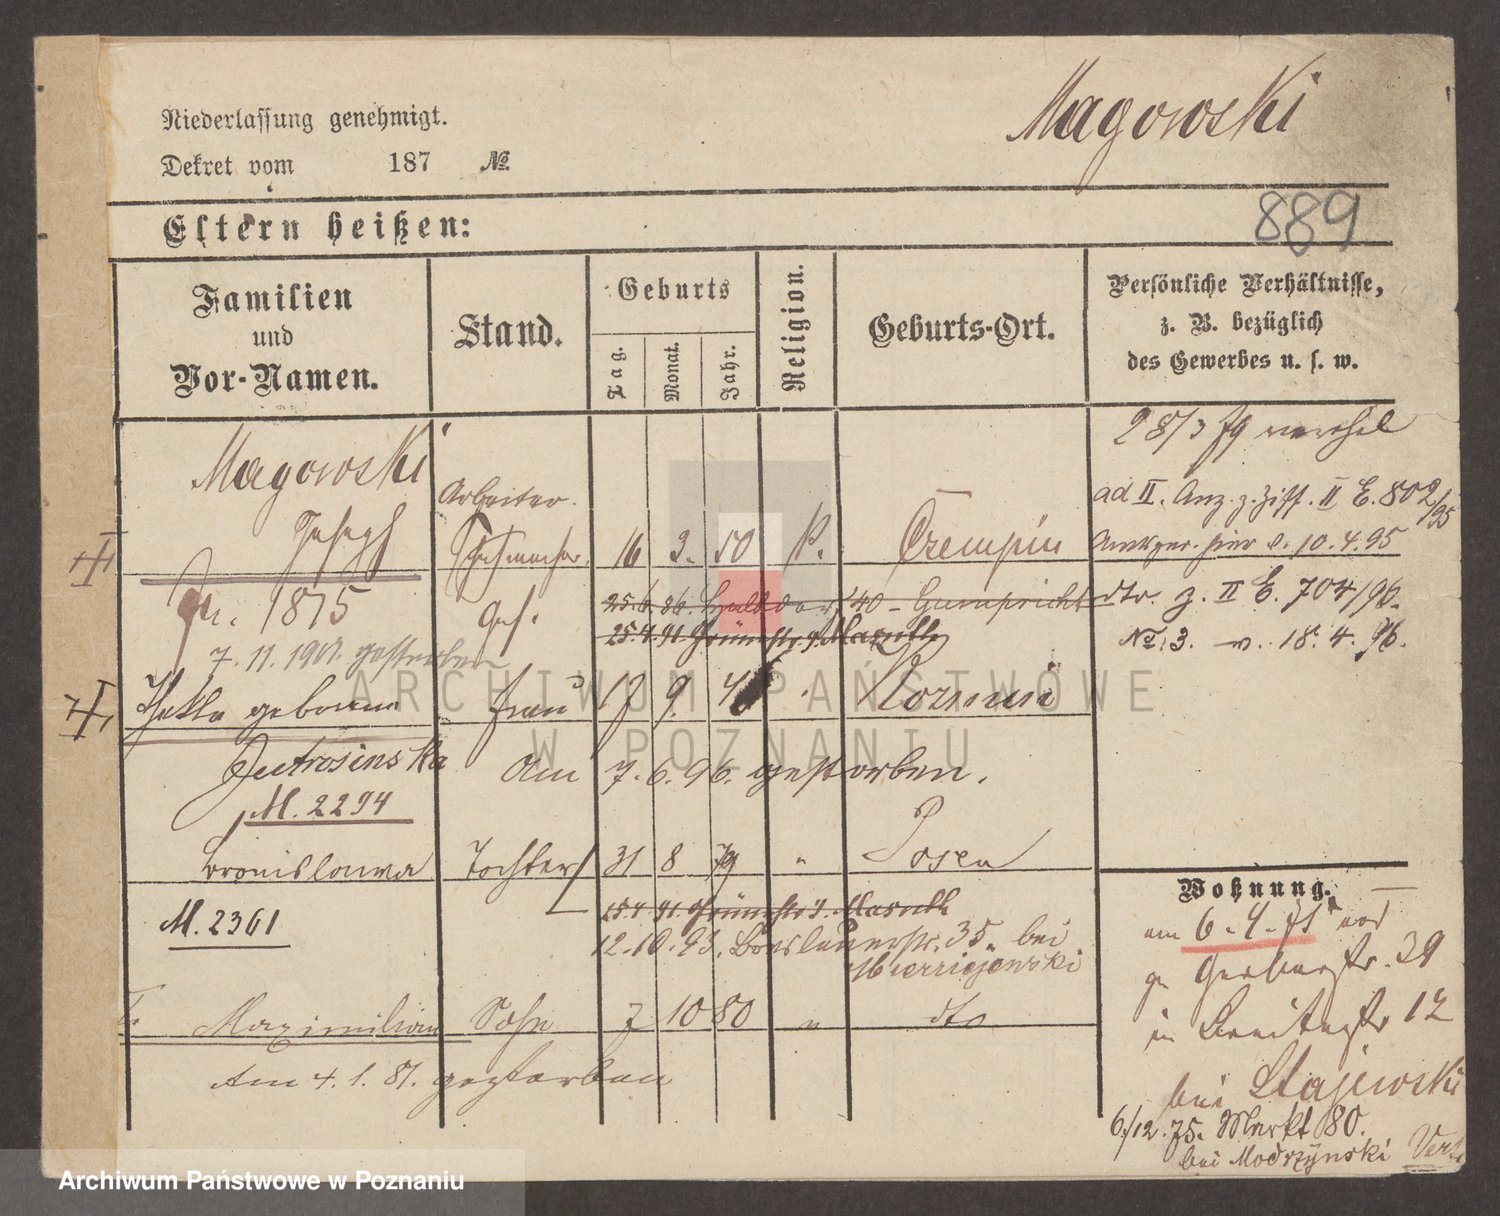 Magowski
Niederlassung genehmigt.
Dekret vom 187 №
889
Eltern heißen:
Familien und Vor-Namen.
Stand.
Geburts
Tag.
Monat.
Jahr.
Religion.
Geburts-Ort.
Persönliche Verhältnisse,
z. B. bezüglich
des Gewerbes u. s. w.
28/3 79
Magowski
Arbeiter.
ad II. Anz. z. Ziff. II E. 802/95
Joseph
16 3. 50
Czempin
v. 10.4.95
1875
25.6.86.
40 - Gumprecht
dto. z. II E. 704/96.
25.4.91 Grünestr 9. Masuth
№ 3. v. 18.4.96.
7.11.1901. gestorben
geborene
Frau
17 9. 4
Kozmin
Jutrosinska
Am 7.6.96. gestorben.
M. 2294
Bronislawa
Tochter
31 8 79 "
Posen
Wohnung.
M. 2361
15.4.91. Grünestr 9. Masuth
am 6.4.71
12.10.93. Breslauerstr. 35. bei
Mierziejewski
Gerberstr. 39
Maximilian
Sohn
7 10 80 "
dto
in Breitestr 12
Am 4.1.81. gestorben
bei Stajewski
6/12.75. Markt 80.
bei Modrzynski
ARCHIWUM PAŃSTWOWE
W POZNANIU
Archiwum Państwowe w Poznaniu